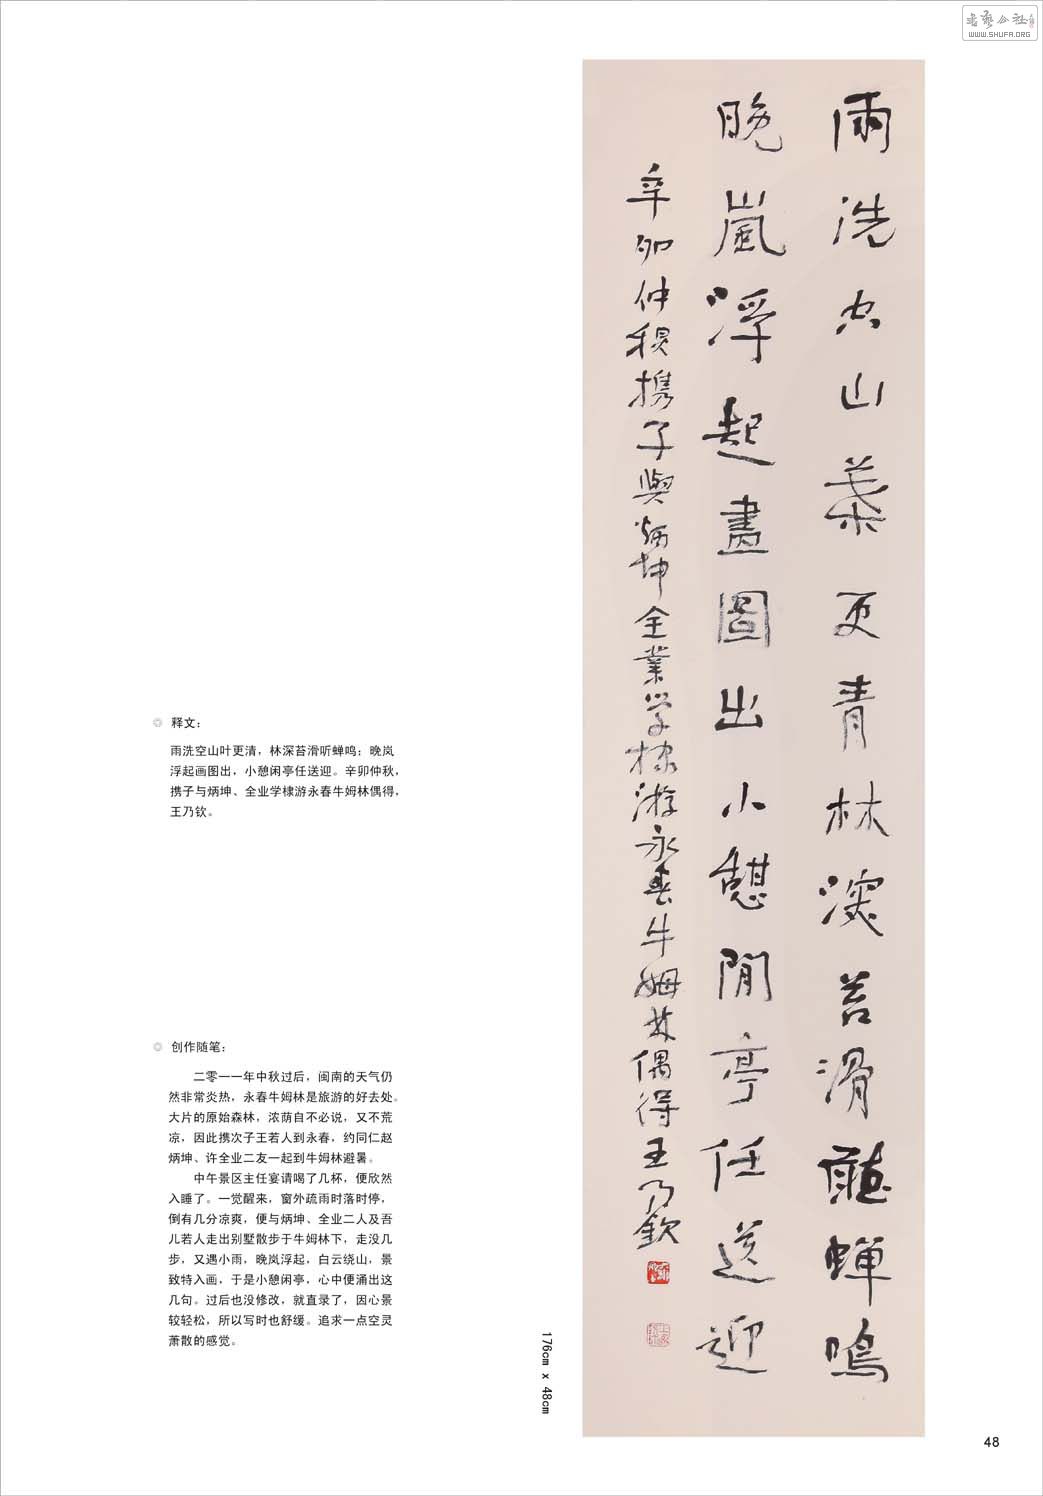 书艺公社
WWW.SHUFA.ORG
雨洗空山葉更青林深苔滑聽蟬鳴
晚嵐浮起畫圖出小憩閒亭任送迎
辛卯仲秋携子與炳坤全業学棣游永春牛姆林偶得王乃欽
释文：
雨洗空山叶更清，林深苔滑听蝉鸣；晚岚
浮起画图出，小憩闲亭任送迎。辛卯仲秋，
携子与炳坤、全业学棣游永春牛姆林偶得，
王乃钦。
创作随笔：
二零一一年中秋过后，闽南的天气仍
然非常炎热，永春牛姆林是旅游的好去处。
大片的原始森林，浓荫自不必说，又不荒
凉，因此携次子王若人到永春，约同仁赵
炳坤、许全业二友一起到牛姆林避暑。
中午景区主任宴请喝了几杯，便欣然
入睡了。一觉醒来，窗外疏雨时落时停，
倒有几分凉爽，便与炳坤、全业二人及吾
儿若人走出别墅散步于牛姆林下，走没几
步，又遇小雨，晚岚浮起，白云绕山，景
致特入画，于是小憩闲亭，心中便涌出这
几句。过后也没修改，就直录了，因心景
较轻松，所以写时也舒缓。追求一点空灵
萧散的感觉。
176cm x 48cm
48